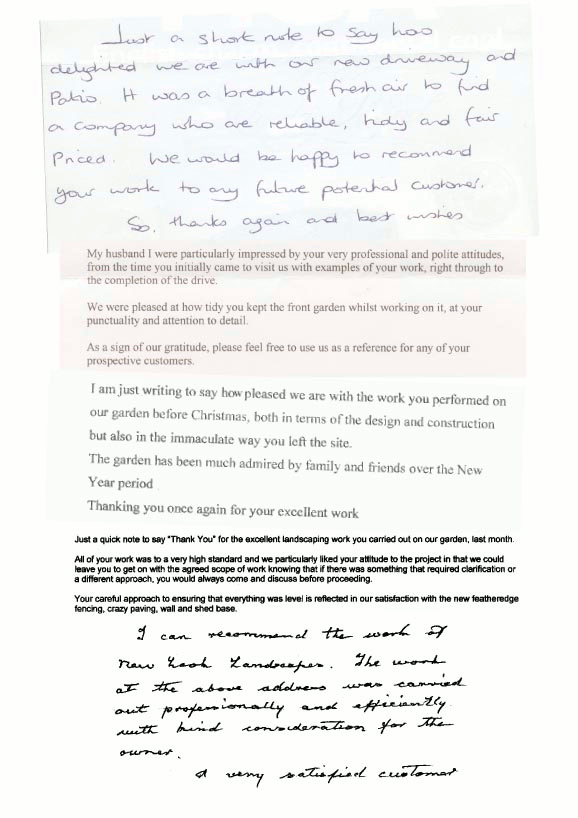 Just a short note to say how
delighted we are with our new driveway and
Patio. It was a breath of fresh air to find
a company who are reliable, tidy and fair
Priced. We would be happy to recommend
your work to any future potential customer.
So, thanks again and best wishes
My husband I were particularly impressed by your very professional and polite attitudes,
from the time you initially came to visit us with examples of your work, right through to
the completion of the drive.
We were pleased at how tidy you kept the front garden whilst working on it, at your
punctuality and attention to detail.
As a sign of our gratitude, please feel free to use us as a reference for any of your
prospective customers.
I am just writing to say how pleased we are with the work you performed on
our garden before Christmas, both in terms of the design and construction
but also in the immaculate way you left the site.
The garden has been much admired by family and friends over the New
Year period
Thanking you once again for your excellent work
Just a quick note to say "Thank You" for the excellent landscaping work you carried out on our garden, last month.
All of your work was to a very high standard and we particularly liked your attitude to the project in that we could
leave you to get on with the agreed scope of work knowing that if there was something that required clarification or
a different approach, you would always come and discuss before proceeding.
Your careful approach to ensuring that everything was level is reflected in our satisfaction with the new featheredge
fencing, crazy paving, wall and shed base.
I can recommend the work of
New Look Landscapes. The work
at the above address was carried
out professionally and efficiently
with kind consideration for the
owner.
A very satisfied customer